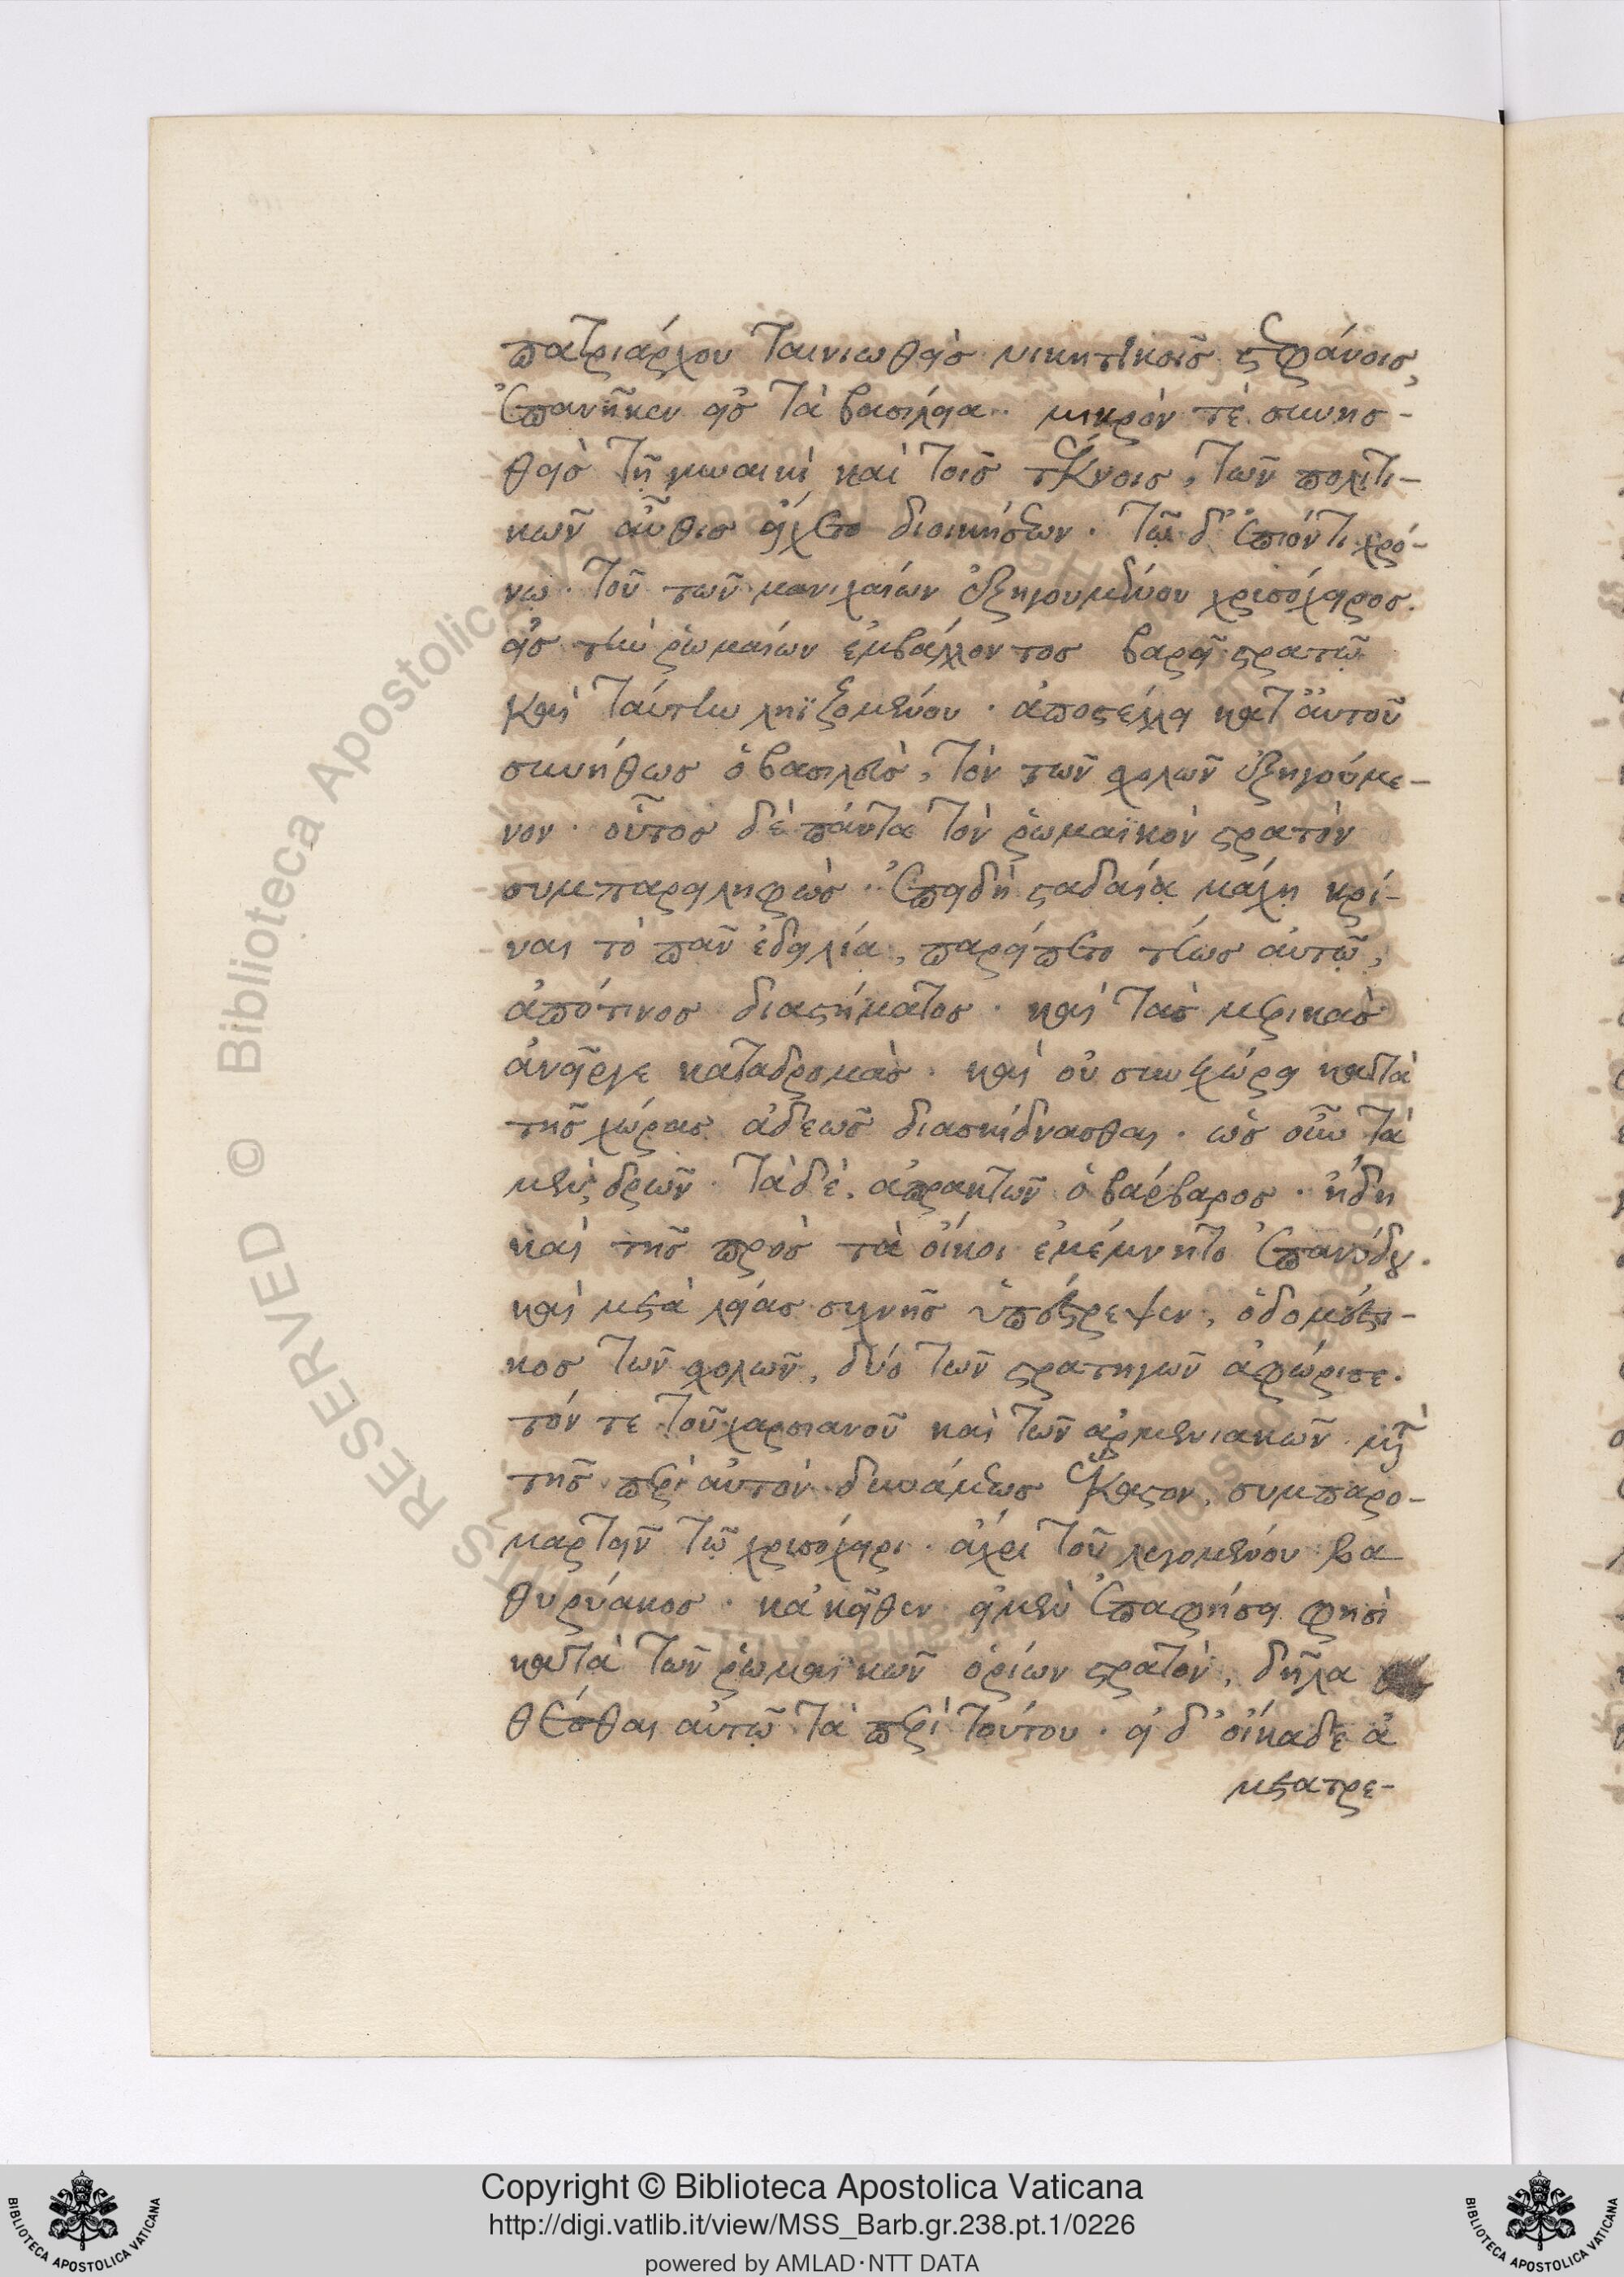 πατριάρχου ταινιωθεὶς νικητικοῖς στεφάνοις,
ἐπανῆκεν εἰς τὰ βασίλεια. μικρὸν τὲ συνησ-
θεὶς τῇ γυναικὶ καὶ τοῖς τέκνοις, τῶν πολιτι-
κῶν αὖθις εἴχετο διοικήσεων. τῷ δ' ἐπιόντι χρό-
νῳ. τοῦ τῶν μανιχαίων ἐξηγουμένου χρυσόχειρος.
εἰς τὴν ῥωμαίων ἐμβάλλοντος βαρεῖ στρατῷ
καὶ ταύτην ληϊζομένου. ἀποστέλλει κατ' αὐτοῦ
συνήθως ὁ βασιλεὺς, τὸν τῶν σχολῶν ἐξηγούμε-
νον. οὗτος δὲ πάντα τὸν ῥωμαϊκὸν στρατὸν
συμπαρειληφὼς. ἐπειδὴ σταδαίᾳ μάχῃ κρί-
ναι τὸ πᾶν ἐδειλία, παρείπετο τέως αὐτῷ,
ἀπό τινος διαστήματος. καὶ τὰς μερικὰς
ἀνεῖργε καταδρομὰς. καὶ οὐ συνεχώρει κατὰ
τῆς χώρας ἀδεῶς διασκίδνασθαι. ὡς οὖν τὰ
μὲν, δρῶν. τὰ δὲ, ἀπρακτῶν ὁ βάρβαρος. ἤδη
καὶ τῆς πρὸς τὰ οἴκοι ἐμέμνητο ἐπανόδου.
καὶ μετὰ λείας συχνῆς ὑπέστρεψεν, ὁ δομέστι-
κος τῶν σχολῶν, δύο τῶν στρατηγῶν ἀφώρισε.
τόν τε τοῦ χαρσιανοῦ καὶ τῶν ἀρμενιακῶν. μετὰ
τῆς περὶ αὐτὸν δυνάμεως ἕκαστον, συμπαρο-
μαρτεῖν τῷ χρυσόχειρι. ἄχρι τοῦ λεγομένου βα
θυρύακος. κἀκεῖθεν εἰ μὲν ἐπαφήσει φησὶ
κατὰ τῶν ῥωμαϊκῶν ὁρίων στρατὸν, δῆλα
θέσθαι αὐτῷ τὰ περὶ τούτου. εἰ δ' οἴκαδε ἀ
μετατρε-
Copyright © Biblioteca Apostolica Vaticana
http://digi.vatlib.it/view/MSS_Barb.gr.238.pt.1/0226
powered by AMLAD·NTT DATA